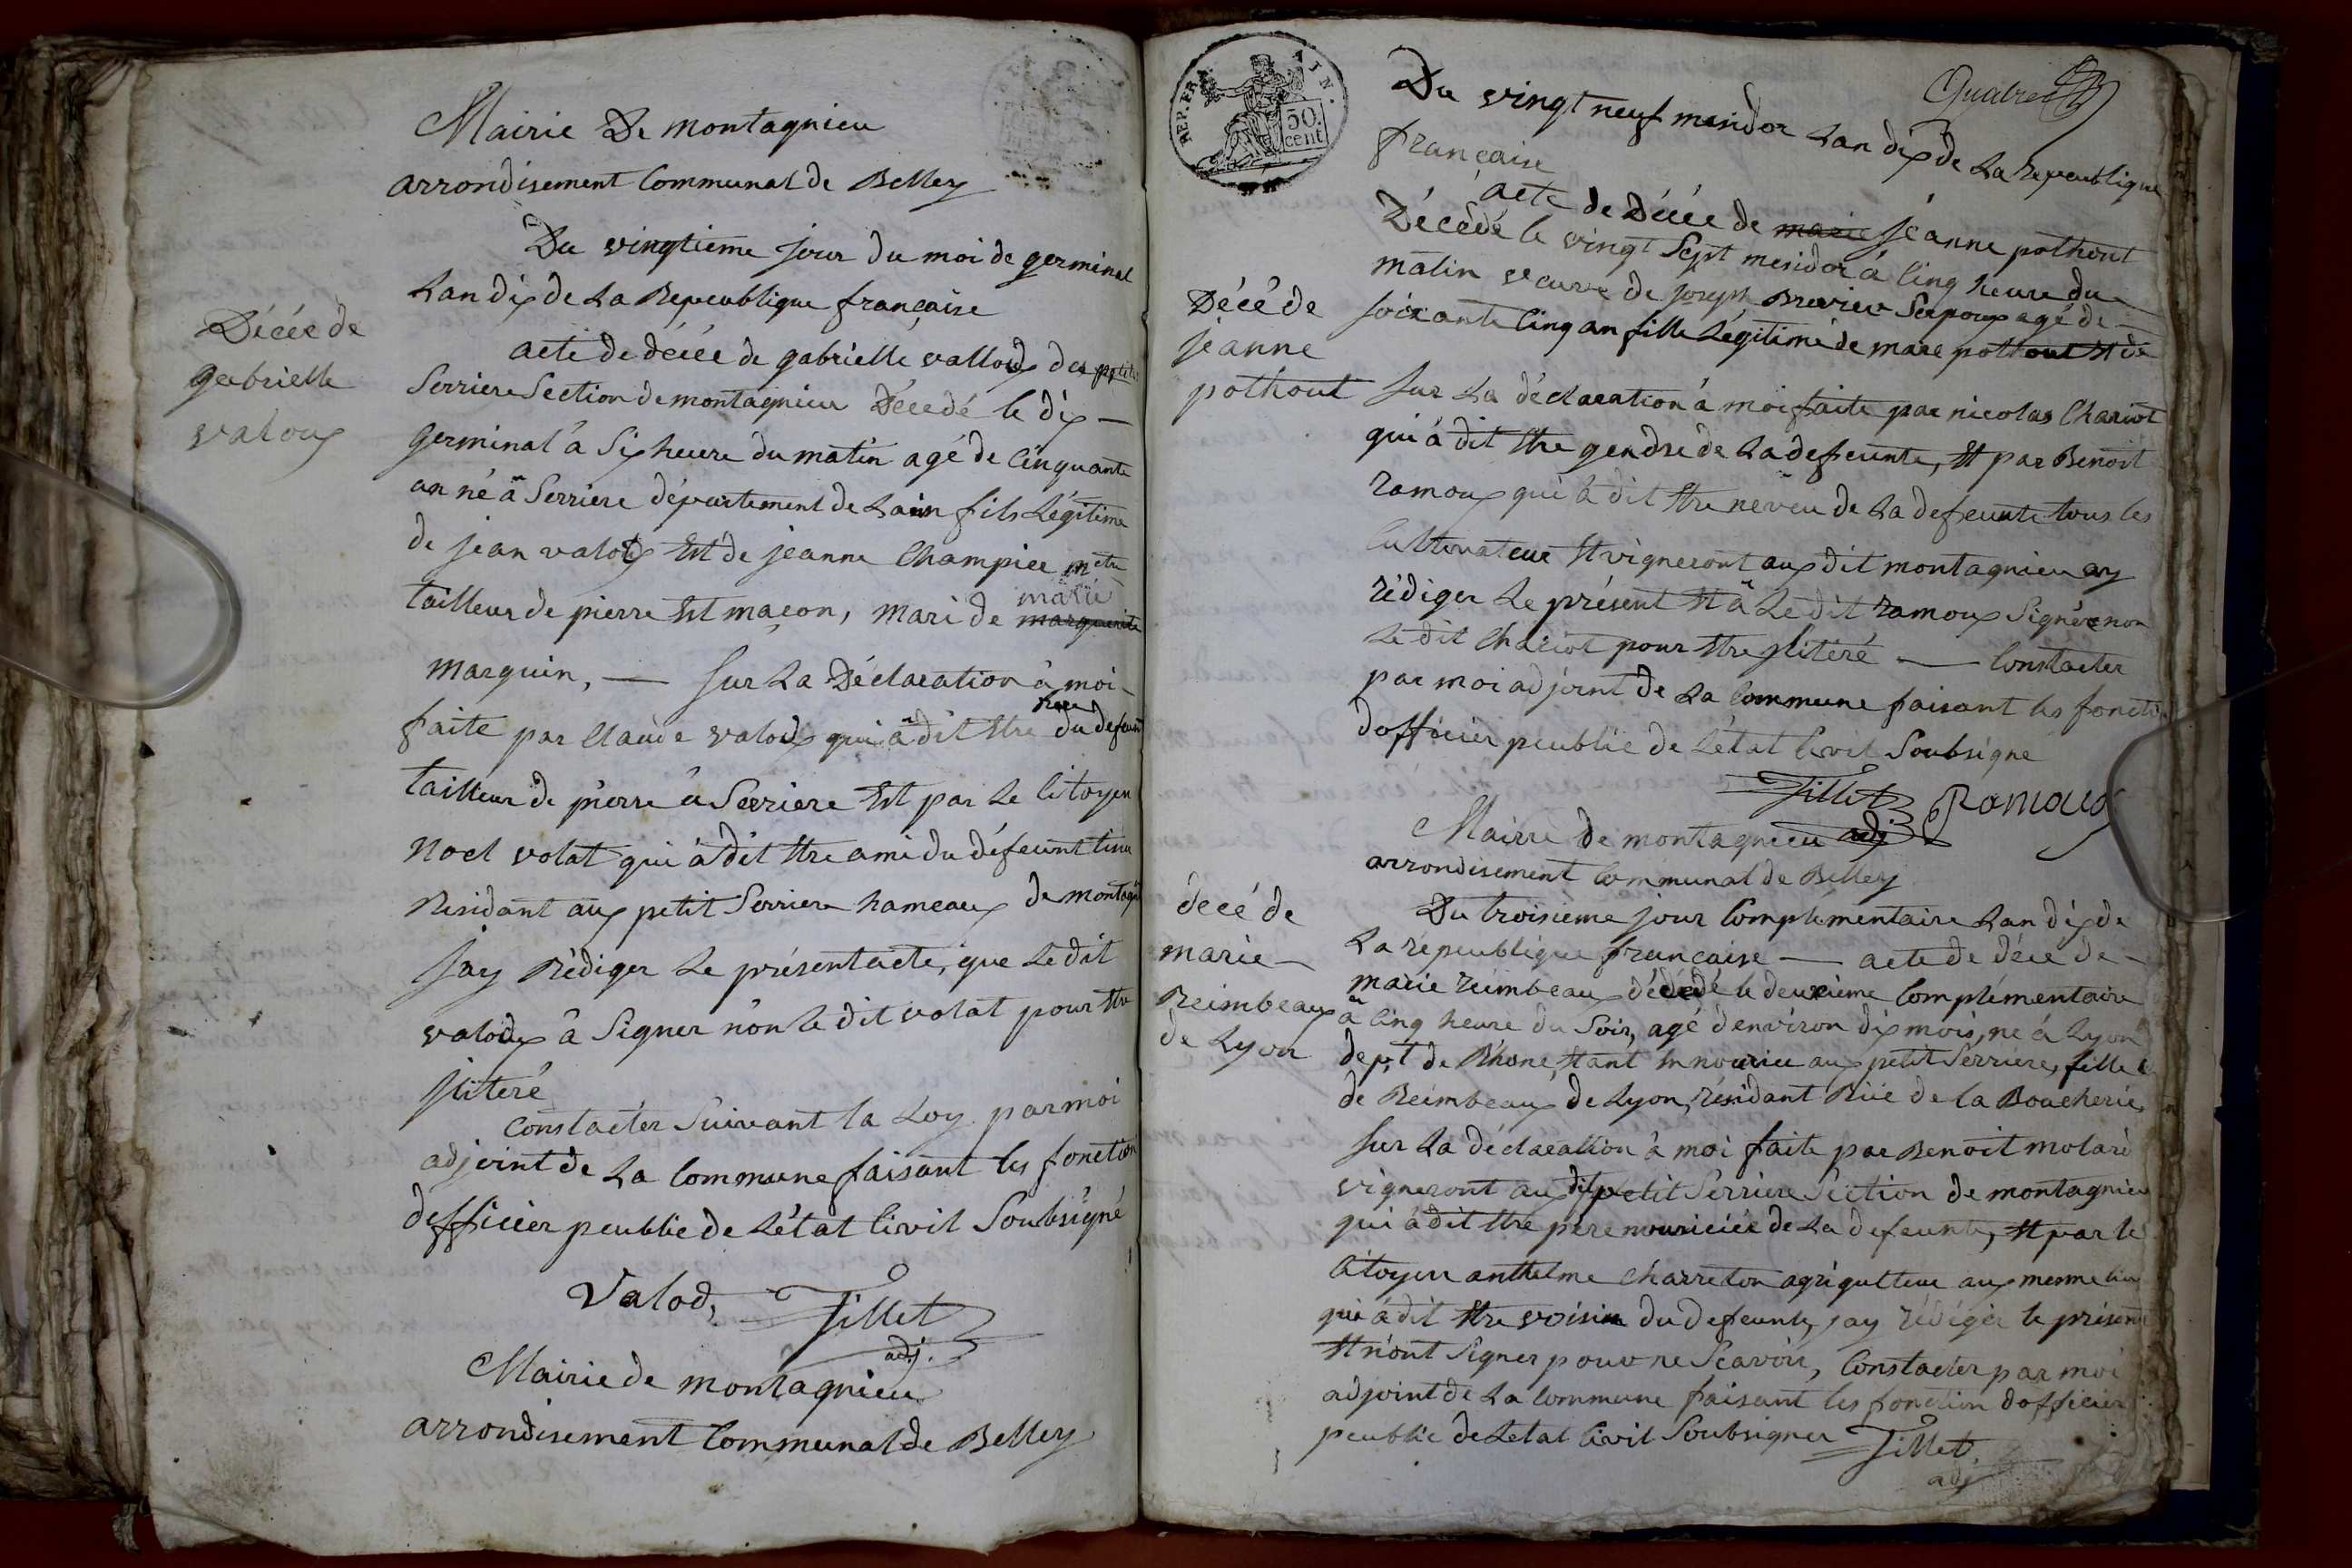 Mairie De montagnieu
arrondisement Communal de Belley
Du vingtieme jour du moi de germinal
Lan dix de La Repeublique française
Décée de
gabrielle
valoux
acte de décée de gabrielle valloux des petit
Serriere Section de montagnieu Décedé le dix —
germinal â Six heure du matin agé de Cinquante
an né â Serriere département de Lain fils Légitime
de jean valoux Et de jeanne Champier
marie
tailleur de pierre Et maçon, mari de marguerite
marguin, — Sur La Déclaration à moi
faite par Claude valoux qui â dit Etre du defeunt
tailleur de pierre â Serriere Et par Le Citoyen
Noel volat qui â dit Etre ami du défeunt
Residant aux petit Serriere hameaux de montag
jay Rédiger Le présent acte, que Le dit
valoux â Signer non le dit volat pour Etre
jliteré
Constater Suivant la Loy par moi
adjoint de La Commune faisant les fonction
dofficier peublic de Létat Civil Soubsigné
Valod, Tillet
adj.
Mairie de montagnieu
arrondisement Communal de Belley
REP. FRA. 50. cent
Quatre
Du vingt neuf mesidor Lan dix de La Repeublique
française
acte de Décée de marie jeanne pothout
Décédé le vingt Sept mesidor â Cinq heure du
matin veuve de joseph Brevier Sepoux agé de —
Décé de
jeanne
pothout
soixante Cinq an fille Légitime de marc pothout Et de
Sur La déclaration â moi faite par nicolas Chariot
qui â dit Etre gendre de La defeunte, Et par Benoit
ramoux qui â dit Etre neveu de La defeunte tous les
Cultivateur Et vigneront aux dit montagnieu ay
rédiger Le présent Et â Le dit ramoux Signée non
Le dit Chariot pour Etre jlitéré — Constater
par moi adjoint de La Commune faisant les foncti
dofficier peublic de Létat Civil Soubsigne
Tillet Ramoux
adj
Mairie de montagnieu
arrondisement Communal de Belley
Du troisieme jour Complementaire Lan dix de
décé de
marie
Reimbeaux
de Lyon
La repeublique française — acte de décé de —
marie reimbeaux décedé le deuxieme Complémentaire
â Cinq heure du Soir, agé denviron dix mois, ne â Lyon
dept. de Rhone, Etant en nourice aux petit Serriere, fille
de Reimbeaux de Lyon, résidant Rüe de la Boucherie,
Sur La déclaration â moi faite par Benoit molard
vigneront au dit petit Serriere Section de montagnieu
qui â dit Etre pere nouriciée de La defeunte, Et par le
Citoyen anthelme Charreton agriqulteur aux mesme lieu
qui â dit Etre voisin du defeunte, jay rédiger le présent
Et n'ont Signer pour ne Scavoir, Constater par moi
adjoint de La Commune faisant les fonction dofficier
peublic de Letat Civil Soubsigner Tillet
adj